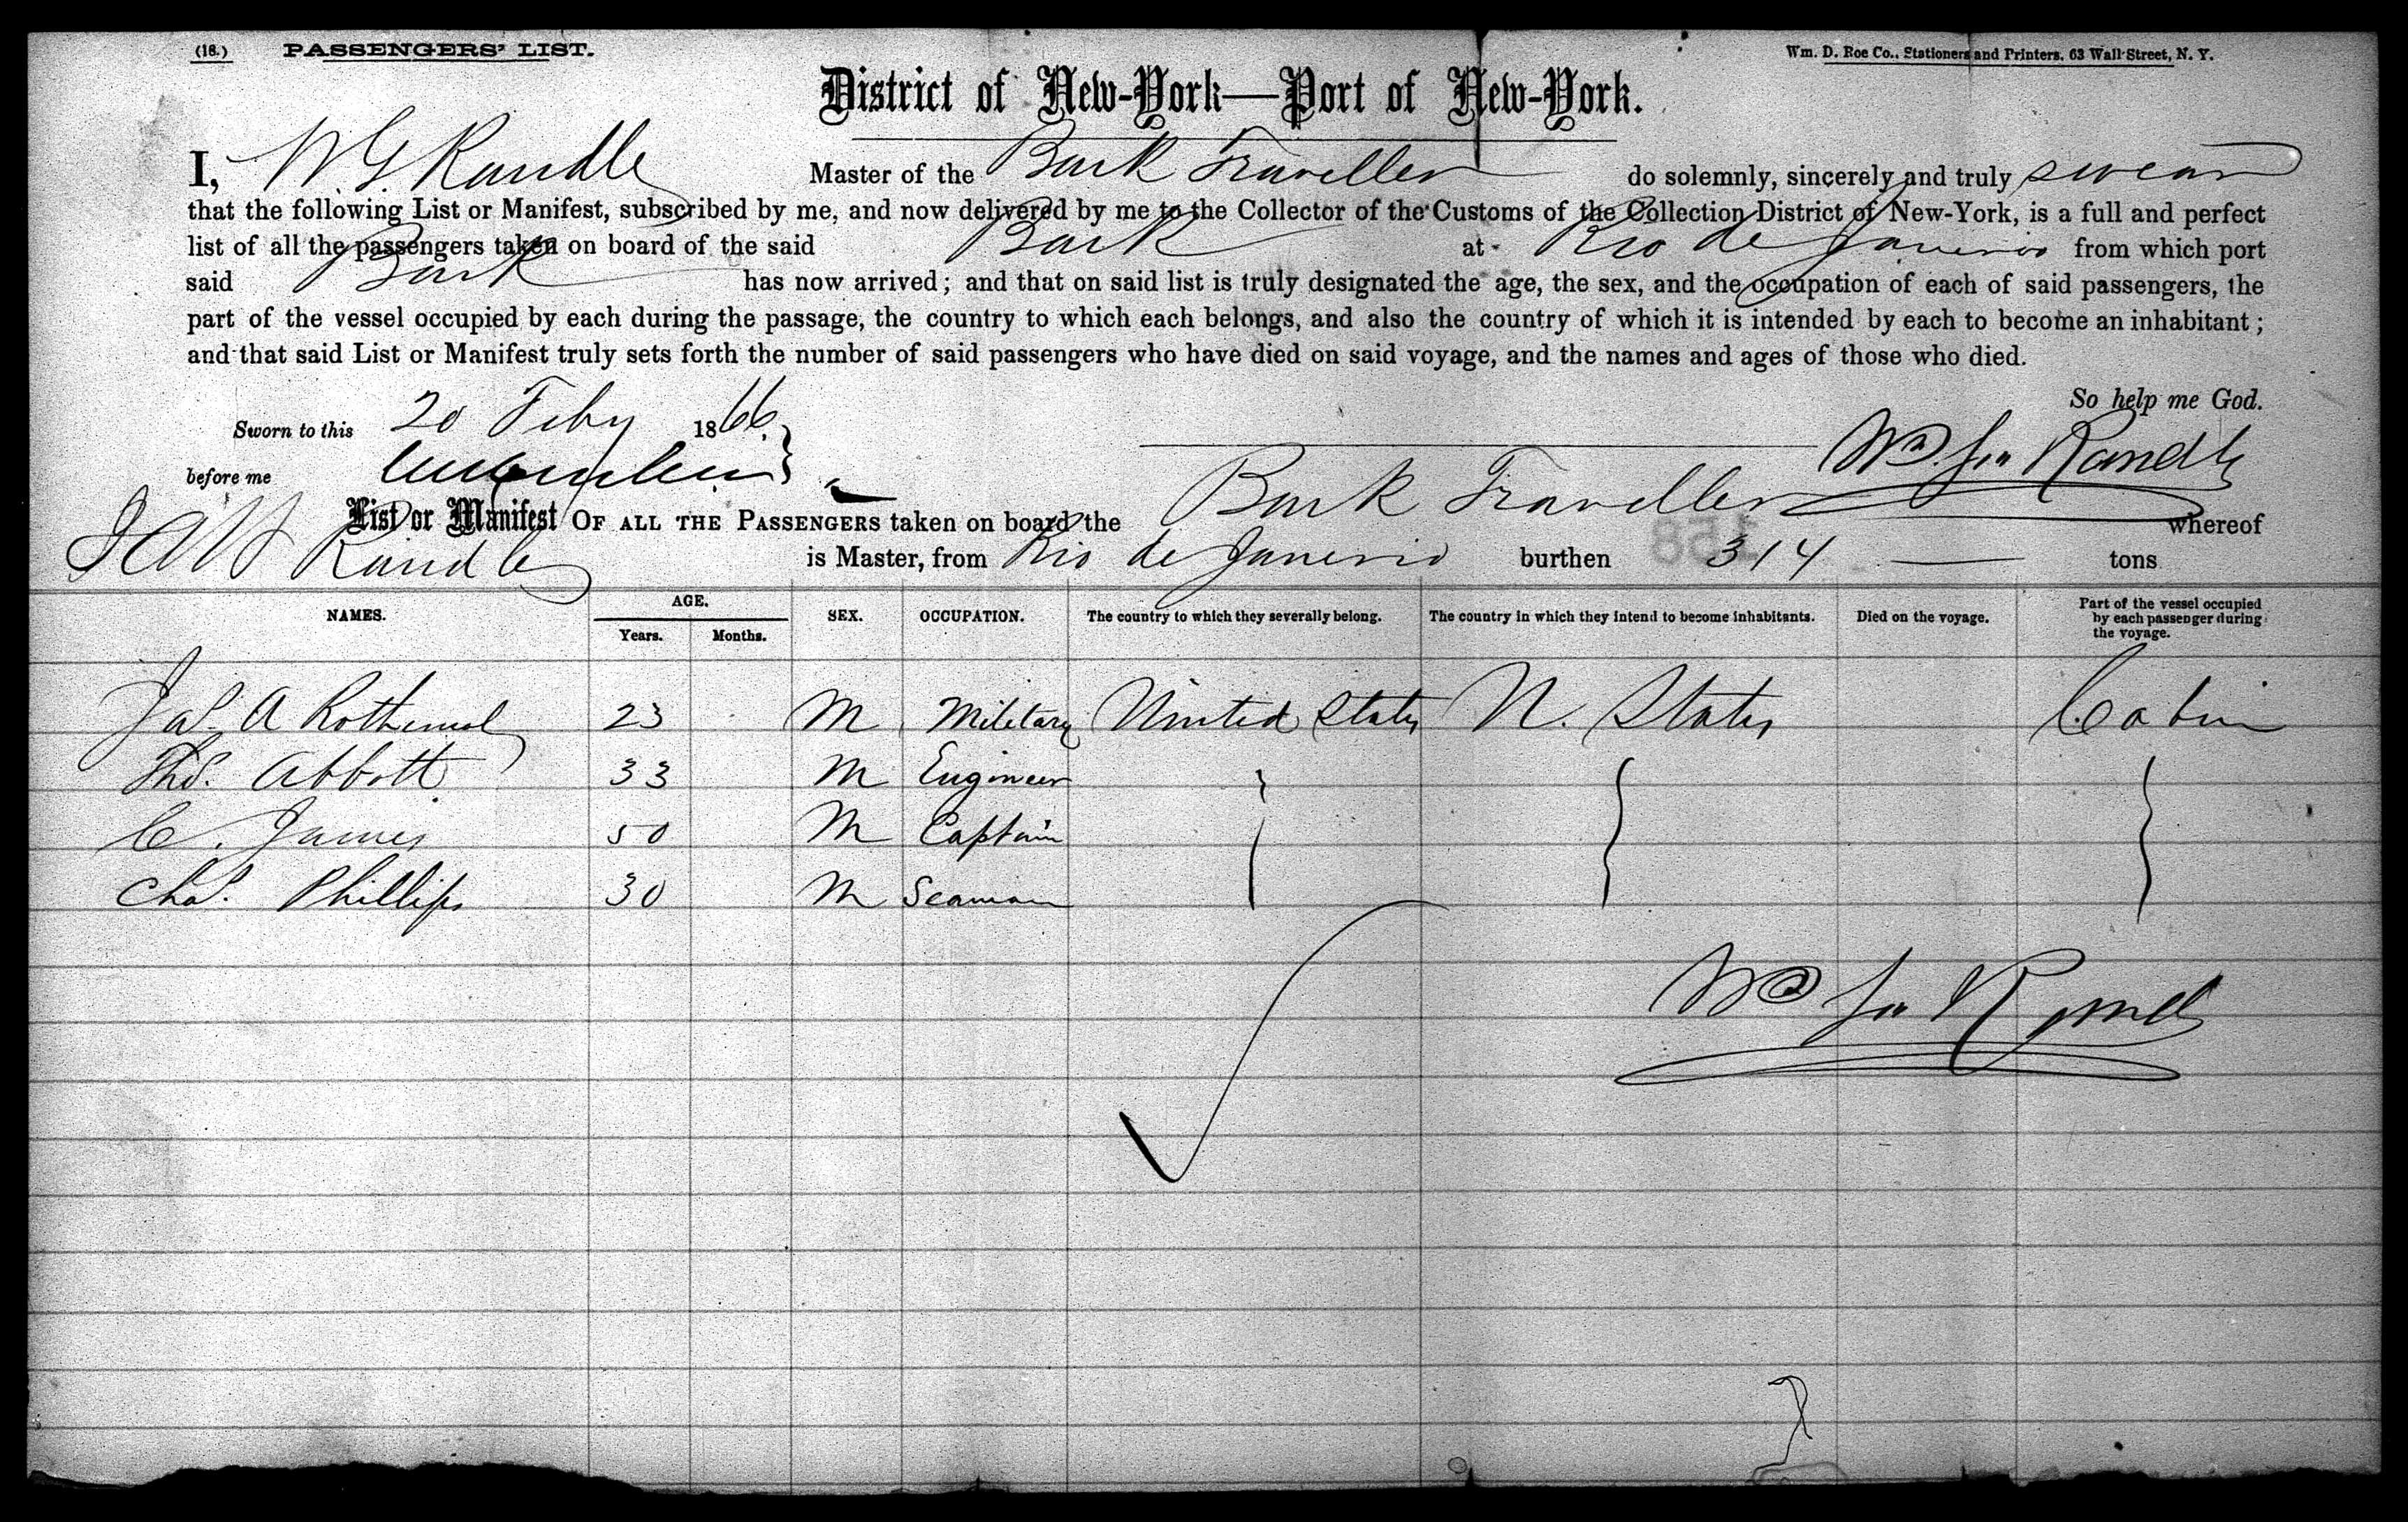 (16.) PASSENGERS' LIST. Wm. D. Roe Co., Stationers and Printers, 63 Wall Street, N. Y.
District of New-York—Port of New-York.
I, W G Randle Master of the Bark Traveller do solemnly, sincerely and truly swear
that the following List or Manifest, subscribed by me, and now delivered by me to the Collector of the Customs of the Collection District of New-York, is a full and perfect
list of all the passengers taken on board of the said Bark at Rio de Janeiro from which port
said Bark has now arrived; and that on said list is truly designated the age, the sex, and the occupation of each of said passengers, the
part of the vessel occupied by each during the passage, the country to which each belongs, and also the country of which it is intended by each to become an inhabitant;
and that said List or Manifest truly sets forth the number of said passengers who have died on said voyage, and the names and ages of those who died.
So help me God.
Sworn to this 20 Feby 1866
before me
Wm. Randle
List or Manifest OF ALL THE PASSENGERS taken on board the Bark Traveller whereof
Randle is Master, from Rio de Janerio burthen 314 tons
158
NAMES. AGE. Years. Months. SEX. OCCUPATION. The country to which they severally belong. The country in which they intend to become inhabitants. Died on the voyage. Part of the vessel occupied by each passenger during the voyage.
Jas. A 23 M Military United States U. States Cabin
Thos. Abbott 33 M Engineer
C. James 50 M Captain
Chas. Phillips 30 M Seaman
Wm Randle